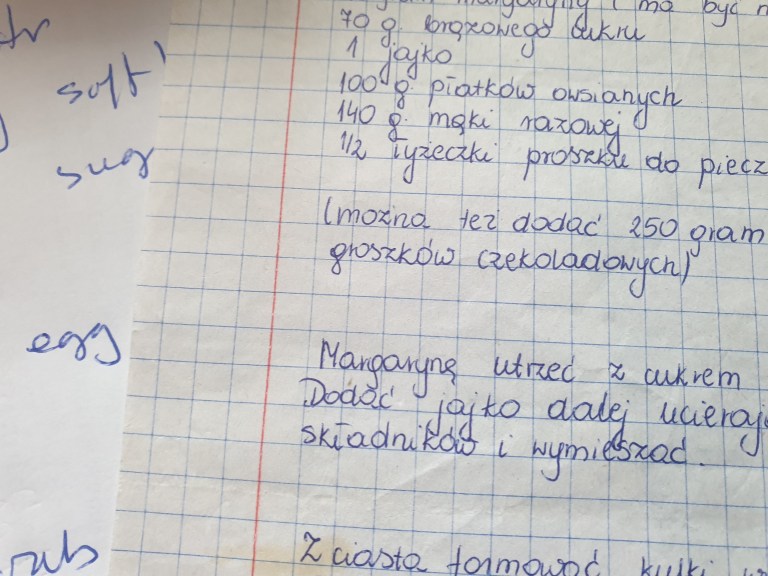 70 g. brązowego cukru
1 jajko
100 g. płatków owsianych
140 g. mąki razowej
1/2 łyżeczki proszku do piecz
(można też dodać 250 gram
groszków czekoladowych)
Margarynę utrzeć z cukrem
Dodać jajko dalej ucierają
składników i wymieszac.
Z ciasta formować kulki
soft
sug
egg
rub